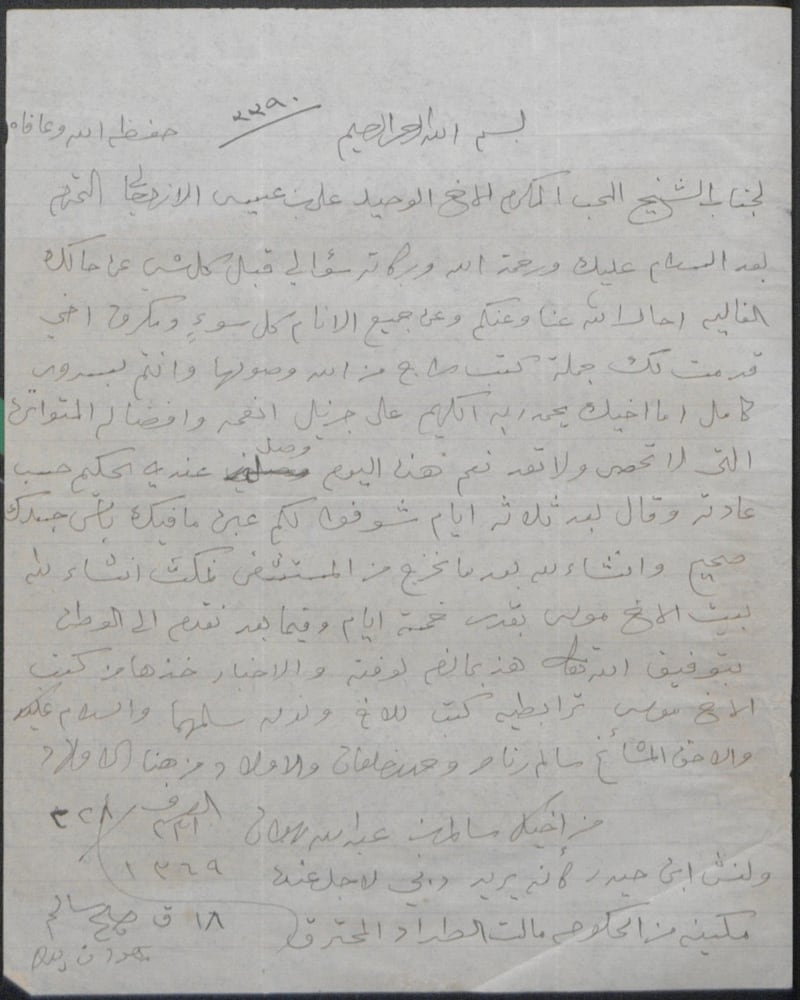 بسم الله الرحمن الرحيم ٢٢٩٠ حفظه الله وعافاه
لجناب الشيخ المحب المكرم الاخ الوحيد علي بن عيسى المحترم
بعد السلام عليك ورحمة الله وبركاته سؤالي قبل كل شي عن حالك
الغاليه احال الله عنا وعنكم وعن جميع الانام كل سوء ومكروه اخي
قدمت لك جملة كتب من الله وصولها وانتم بسرور
كامل اما اخيك يحمد ربه الكريم على جزيل انعمه وافضاله المتواتره
التي لا تحصى ولا تعد نعم هذا اليوم وصل عندي الحكيم حسب
عادته وقال بعد ثلاثه ايام شوفوا لكم عبره مافيك بأس جسدك
صحيح وانشاء لله بعد ما نخرج من المستشفى نمكث انشاء لله
بيت الاخ موسى بقدر خمسة ايام وفيما بعد نقدم الى الوطن
بتوفيق الله تعالى هذ مالزم لوفته والاخبار خذها من كتب
الاخ موسى ترا بطيه كتب للاخ سلمهما والسلام عليكم
والاخ المشائخ سالم وحمد خلفان والاولاد ومن هنا الاولاد
من اخيك سالم بن عبدالله
ولنش ابن حيدر كانه يريد دبي لاجل ١٣٦٩
مكينه من الحكومه مالت الطراد المحترق ١٨ ق